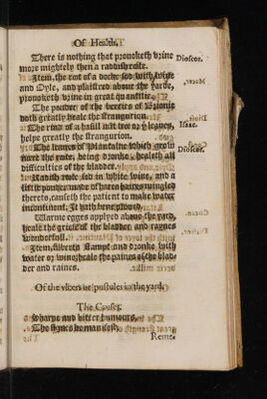 Of Health.
There is nothing that prouoketh vrine Dioscor.
more mightely then a raddish roote.
Item, the root of a docke sod with wine
and Oyle, and plaistred about the yarde,
prouoketh vrine in great quantitie.
The pouder of the berries of Brionie
doth greatly heale the strangurion.
The rind of a hasill nut tree or leaues, Isaac.
helpe greatly the strangurion.
The leaues of Plantaine which grow Dioscor.
nere the yarde, being dronke, healeth all
difficulties of the bladder.
Radish rode sod in white wine, and a
litle pouder made of hares haires mingled
thereto, causeth the patient to make water
incontinent. It hath bene proued.
Warme egges applyed aboue the yard,
heale the griefe of the bladder and raynes
wonderfull.
Item, stampt and dronke with
water or wine, heale the paines of the blad-
der and raines.
Of the vlcers or pustules in the yard.
The Causes.
Sharpe and bitter humours.
The signes be manifest.
Reme-